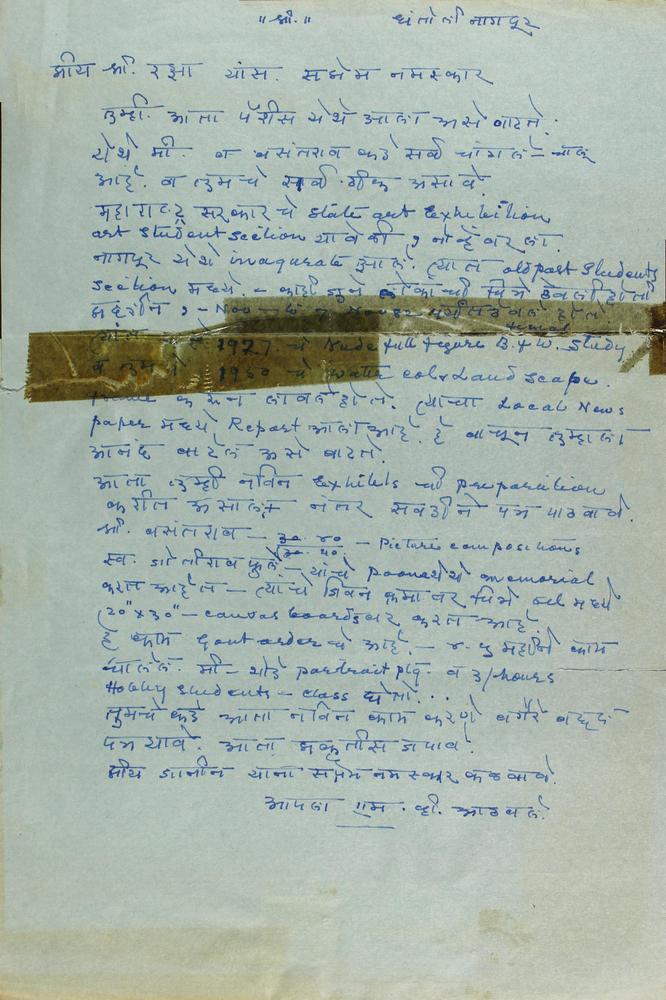 ॥ श्री. ॥ धंतोली नागपूर
प्रीय श्री. रझा यांस. सप्रेम नमस्कार
तुम्ही. आता पॅरीस येथे आला असे वाटते.
येथे मी. व वसंतराव कडे सर्व चांगले - चालू
आहे. व तुमचे सर्व ठीक असावे.
महाराष्ट्र सरकार चे State art Exhibition
art Student Section यावेळी 9 नोव्हेंबर ला.
नागपूर येथे inaugurate झाले. त्यात old past Students
Section मध्ये. - काही जुने लोकांची चित्रे ठेवली होती
प्रदर्शन 9 - Nov
1927 चे Nude full figure B. & W. Study
व तुम चे 1950 चे Water color Land Scape.
करून लावले होते. त्याचा Local News
paper मध्ये Report आला आहे. हे वाचून तुम्हाला
आनंद वाटेल असे वाटते.
आता तुम्ही नविन Exhibits ची preparation
करीत असाल, नंतर सवडीने पत्र पाठवावे.
श्री. वसंतराव - 30. 40. - Picture compositions
स्व. जोतीराव फुले - यांचे poona येथे memorial
करत आहेत - त्यांचे जिवन क्रमा वर चित्रे oil मध्ये
(20" x 30" - canvas boards वर करत आहे.
हे काम Govt order चे आहे. - ४. ५ महीने काम
चालेल. मी - थोडे portrait ptg. व 3/hours
Hobby Students - class घेतो...
तुमचे कडे आता नविन काम करणे वगैरे बद्दल
पत्र द्यावे. आता प्रकृतीस जपावे.
प्रीय जानीन यांना सप्रेम नमस्कार कळवावे.
आपला एम. व्ही. आठवले.